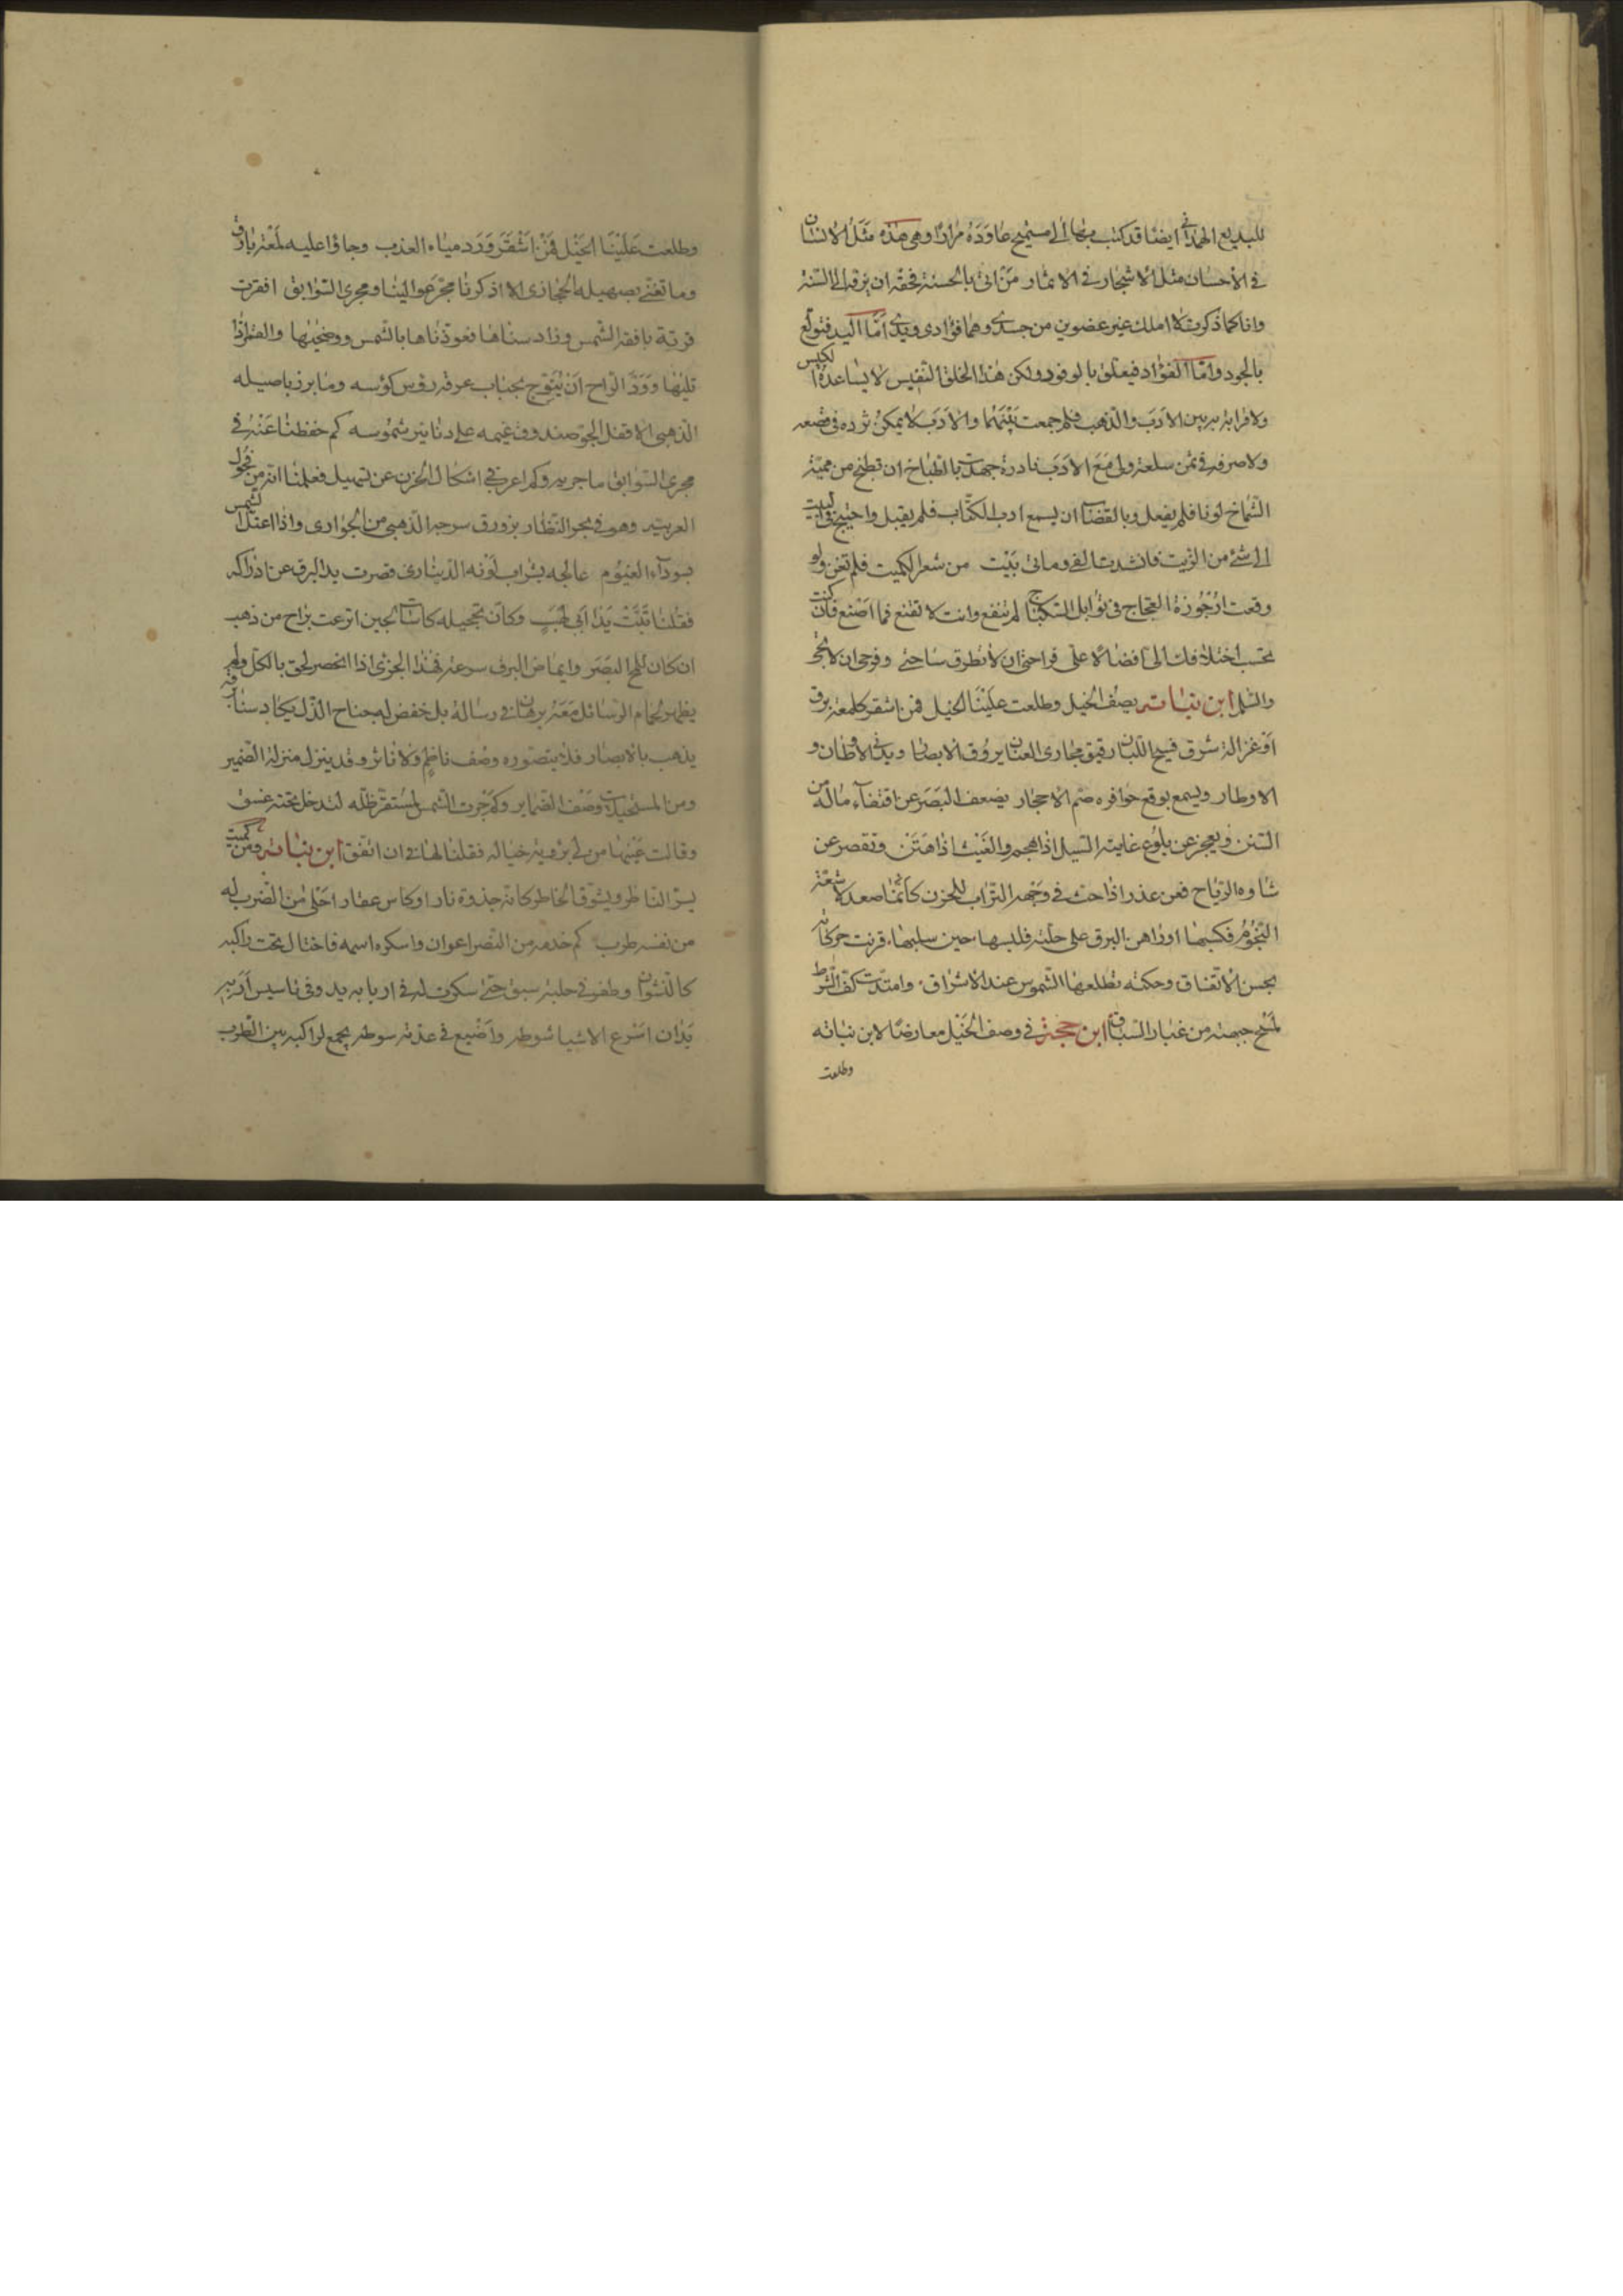 للبديع الهمداني ايضا قد كتب بها الى مستميح عاوده مرارا وهى هذه مثل الانسان
فى الاحسان مثل الاشجار فى الاثمار من اتى بالحسنة فحقه ان يرفه الى السنة
وانا كما ذكرت لا املك غير عضوين من جسدى وهما فؤادى ويدى امّا اليد فتولع
بالجود وامّا الفؤاد فيعلق بالوفود ولكن هذا الخلق النفيس لا يساعده الكيس
ولا قرابة بين الادب والذهب فلم جمعت بينهما والادب لا يمكن ثرده فى قصعه
ولا صرفه فى ثمن سلعة ولى مع الادب نادرة جهدت بالطباخ ان يطبخ من ميمية
الشماخ لونا فلم يفعل وبالقصاب ان يسمع ادب الكتّاب فلم يقبل واحتيج فى البيت
الى شئ من الزيت فانشدت الفى ومائى بيت من شعر الكميت فلم تغن ولو
وقعت ارجوزة العجاج فى توابل السكباج لم تنفع وانت لا تقنع فما اصنع فان كنت
تحسب اختلافك الىّ افضالا علىّ فراحتى ان لا تطرق ساحتى وفرجى ان لا تجى
والسّلم ابن نباته يصف الخيل وطلعت علينا الخيل فمن اشقر كلمعة برق
او غزالة شرق فسيح اللبان رقيق مجارى العنان يروق الابصار ويدنى الاوطان و
الاوطار ويسمع بوقع حوافره صم الاحجار يضعف البصر عن اقتفاء ماله من
السنن ويعجز عن بلوغ غايته السيل اذا هجم والغيث اذا هتن وتقصر عن
شاوه الرياح فعن عذر اذا حثت فى وجهه التراب للحزن كأنما صعد لاشعة
النجوم فكسبها اوراهن البرق على حلته فلبسها حين سلبها قرنت حركاته
بحسن الاتفاق وحكته تطلعها الشموس عند الاشراق وامتدت كف الثريا
لمسح جبهته من غبار السباق ابن حجة فى وصف الخيل معارضا لابن نباته
وطلعت
وطلعت علينا الخيل فمن اشقر ورد مياه العذب وجاؤا عليه لمعة بارق
وما تغنّى بصهيله الحجازى الا اذكرنا مجرّ عوالينا ومجرى السوابق اقفرت
قرته بافقه الشمس وزاد سناها فعوذناها بالشمس وضحيها والقمر اذا
تليها وودّ الراح ان يتوج بحباب عرقه رؤس كؤسه وما برز باصيله
الذهبى الا قفل الجو صندوق غيمه على دنانير شموسه كم حفظنا عنه فى
مجرى السوابق ما جريه وكم اعرب فى اشكال الحزن عن تسهيل فعلمنا انه من فحول
العربية وهو فى بحر النظار بزورق سرجه الذهبى من الجوارى واذا اعتل الشمس
بسوداء الغيوم عالجه بشراب لونه الدينارى قصرت يد البرق عن ادراكه
فقلنا تبت يدا ابى لهب وكان بتحجيله كاسات لجين اترعت براح من ذهب
ان كان للمح البصر وايماض البرق سرعته فهذا الجزئى اذا انحصر لحق بالكلى ولم
يظهر لحمام الرسائل معه برهان فى رسالة بل خفض له جناح الذل يكاد سنا برقه
يذهب بالابصار فلا يتصوره وصف ناظم ولا ناثر وقد ينزل منزلة الضمير
ومن المستحيلات وصف الضماير وكم جرت الشمس لمستقر ظله لتدخل تحته عشق
وقالت عينها من لى برؤية خياله فقلنا لها فى ان اتفق ابن نباته ومن كميت
يسر الناظر ويشوق الخاطر كانه جذوة نار او كاس عقار احلى من الضرب له
من نفسه طرب كم خدمه من النصر اعوان واسكره اسمه فاختال تحت راكبه
كالنشوان وطفر فى حلبة سبق حتى سكون له فى اربابه يد وفى تاسيس ارتبه
يدان اسرع الاشيا شوطه واضيع فى عدته سوطه يجمع لراكبه بين الطرب